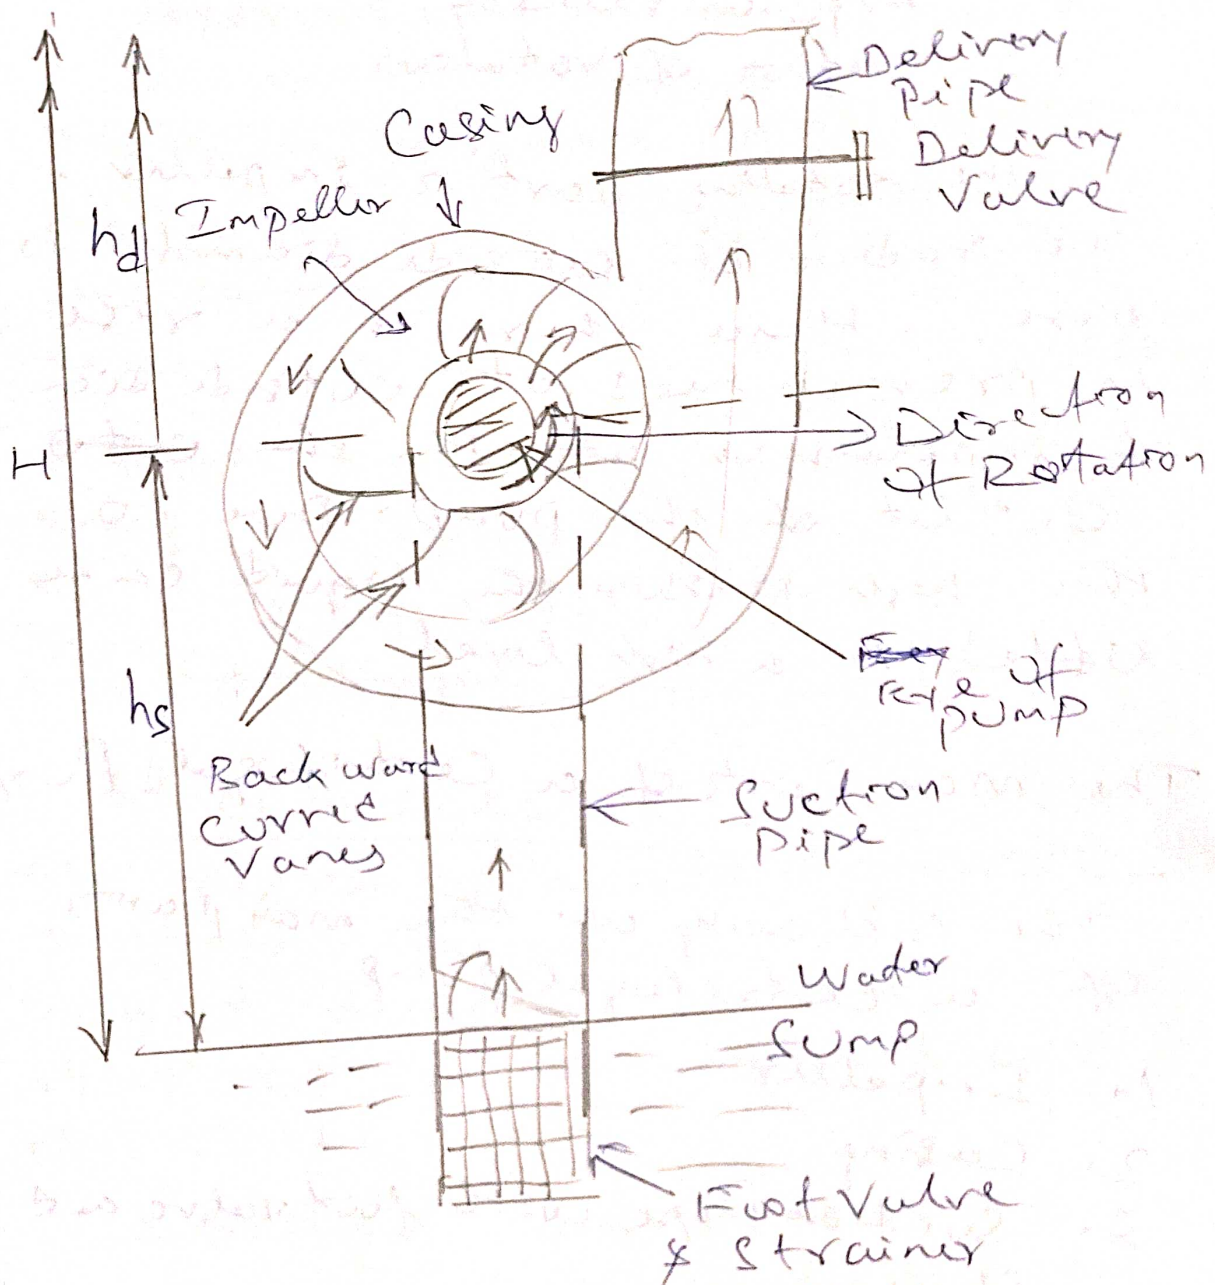 Delivery
Pipe
Casing
Delivery
Valve
Impeller
hd
Direction
of Rotation
H
Eye of
pump
hs
Back ward
Curved
Vanes
Suction
Pipe
Water
Sump
Foot Valve
& Strainer